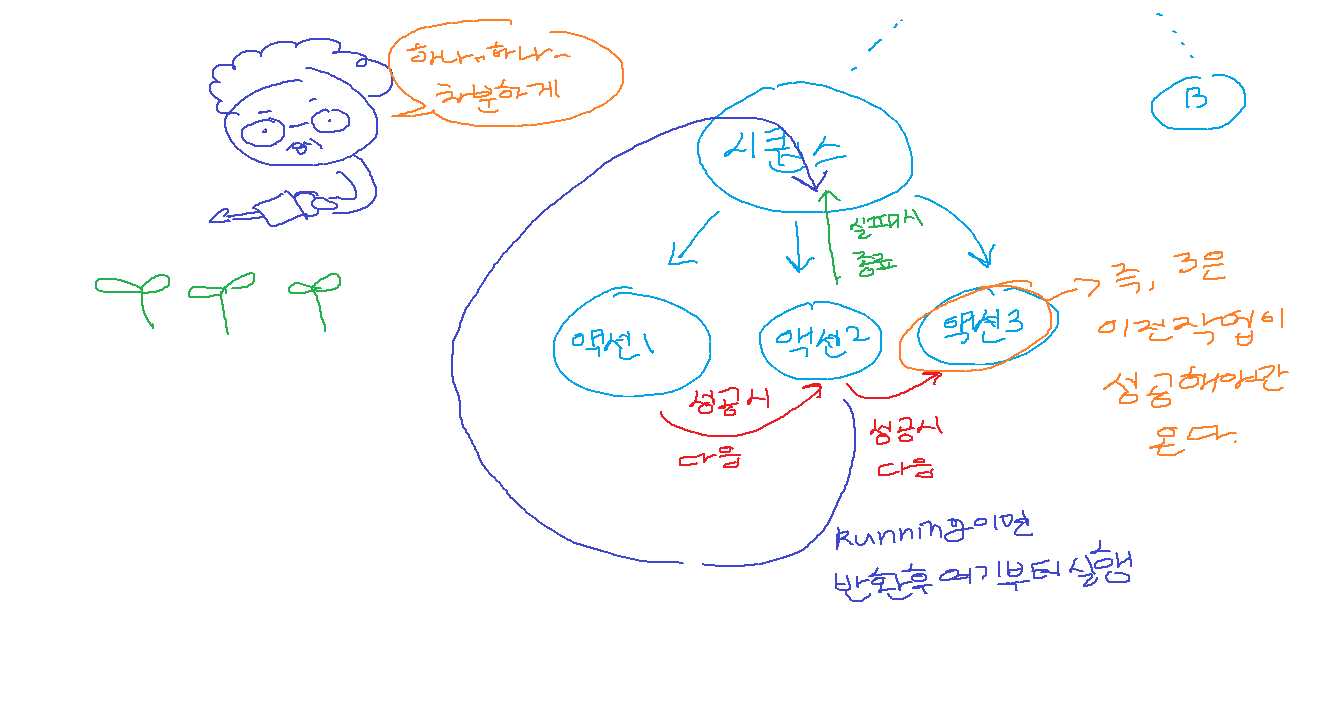 하나.. 하나~
차분하게
B
시퀀스
실패시
종료
액션1
액션2
액션3
즉, 3은
이전작업이
성공해야만
온다.
성공시
다음
성공시
다음
Running중이면
반환후 여기부터 실행